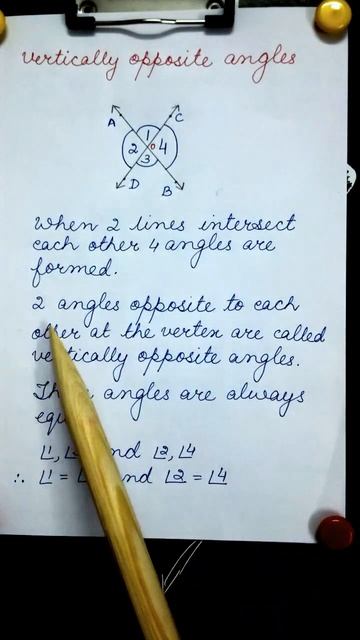 vertically opposite angles
A
C
1
2
o
4
3
D
B
When 2 lines intersect
each other 4 angles are
formed.
2 angles opposite to each
other at the vertex are called
vertically opposite angles.
angles are always
∠1, and ∠2, ∠4
∴ ∠1 = and ∠2 = ∠4